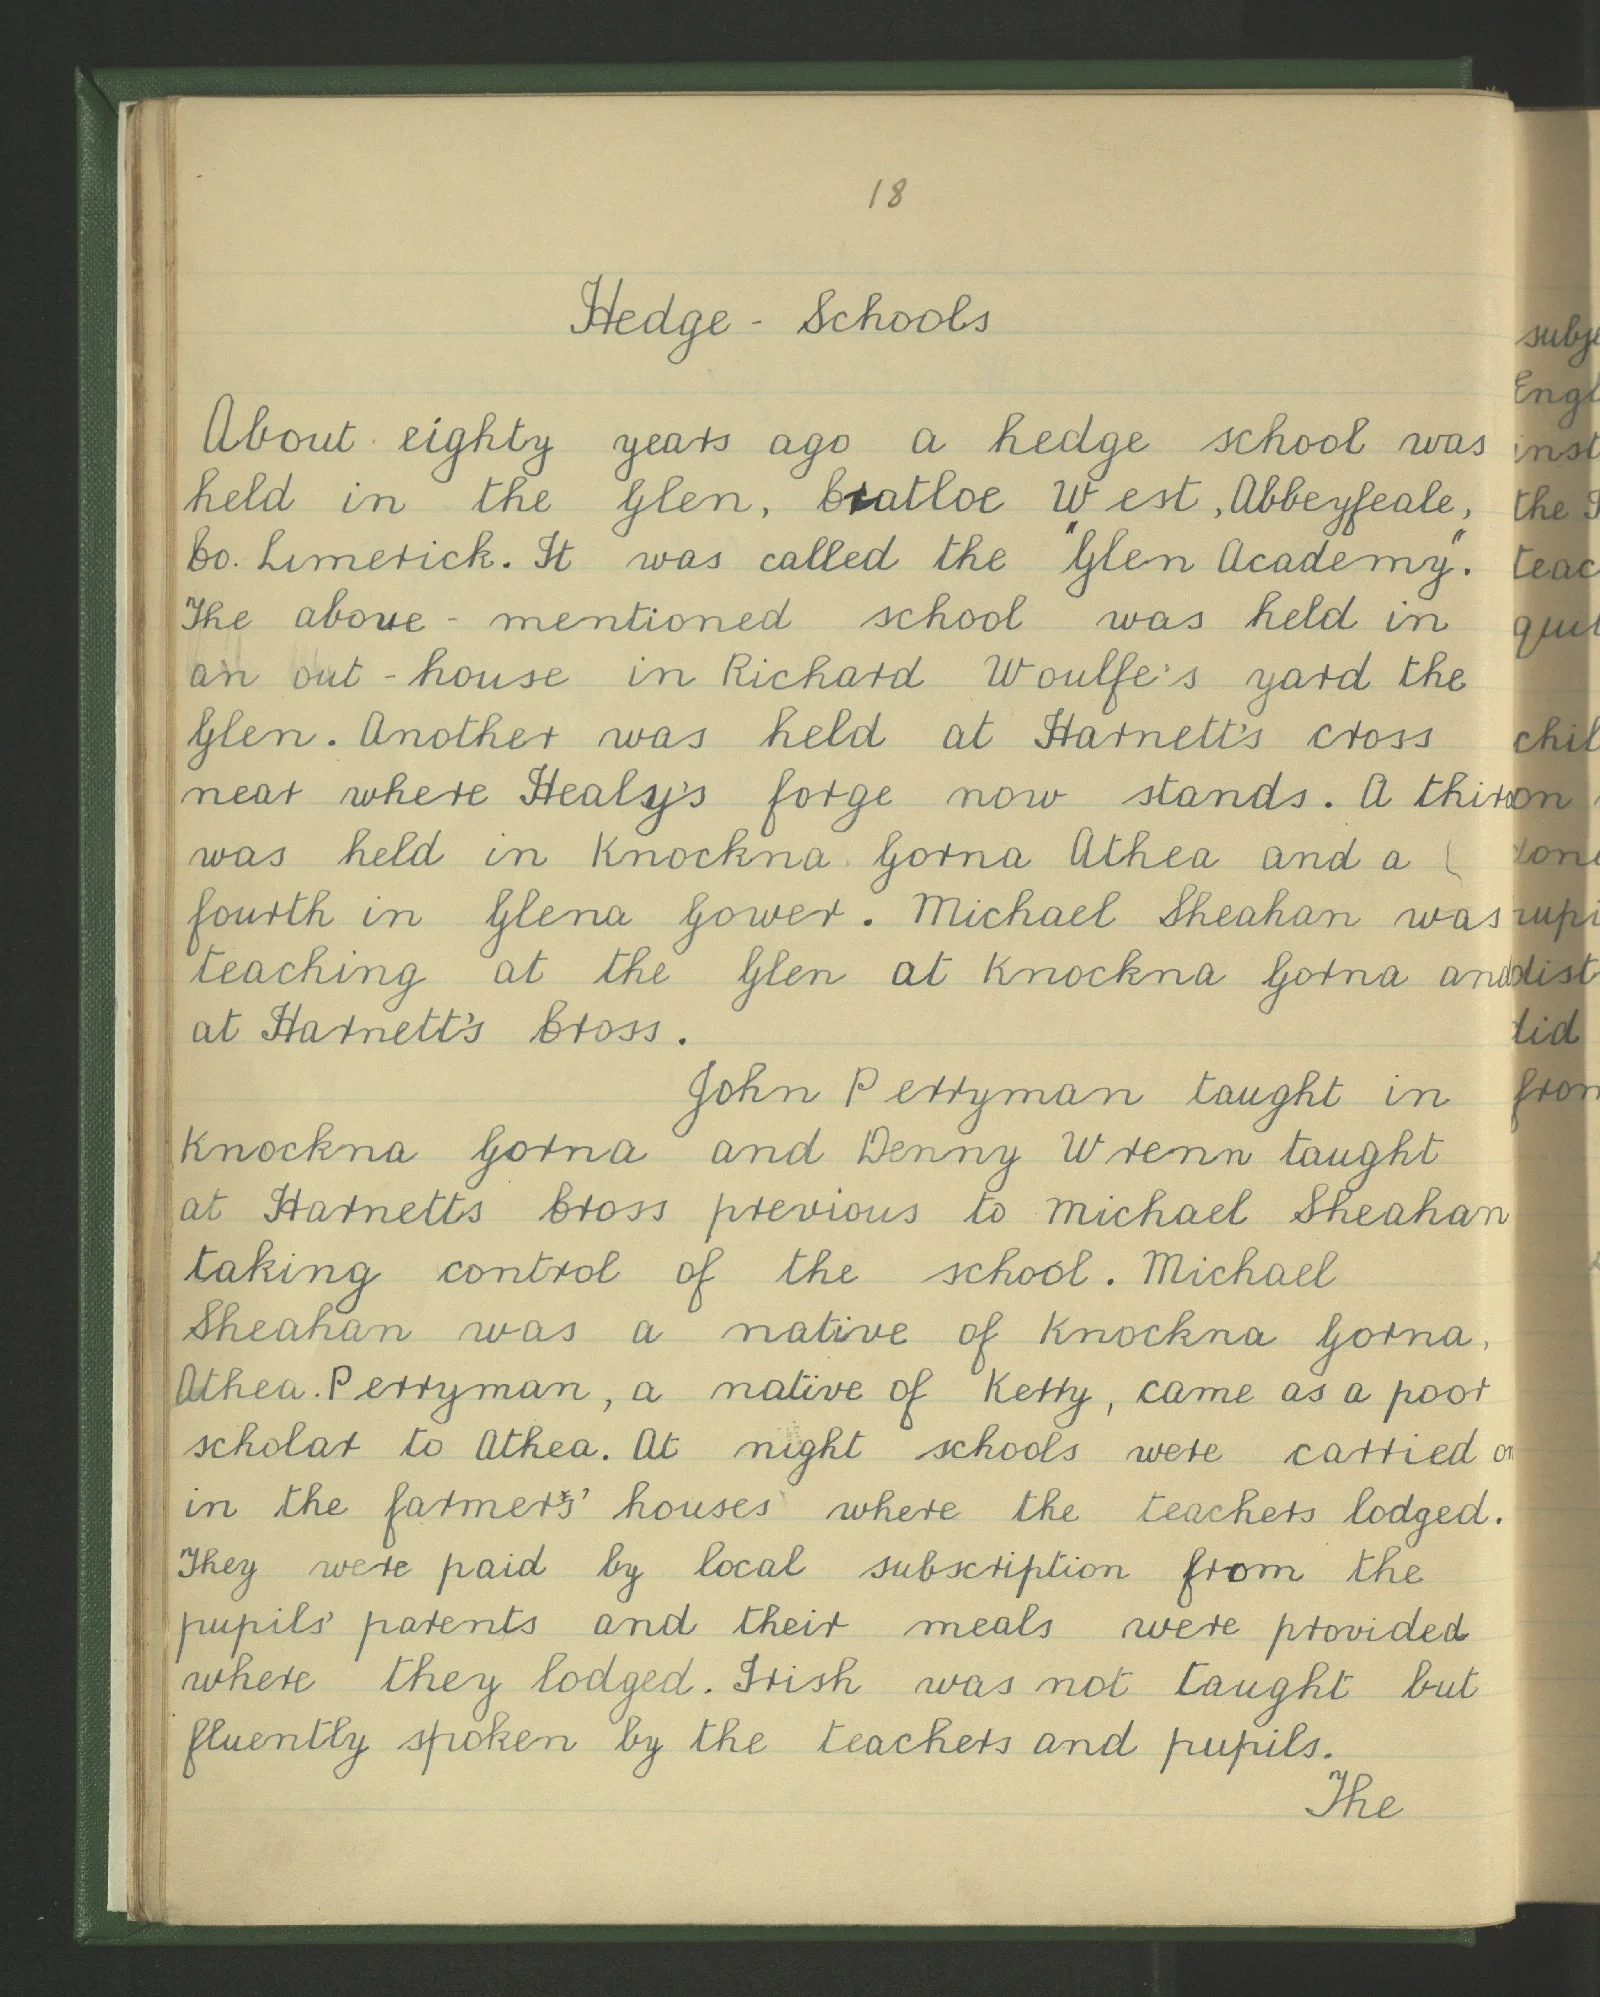 18
Hedge - Schools
About eighty years ago a hedge school was
held in the Glen, Cratloe West, Abbeyfeale,
Co. Limerick. It was called the "Glen Academy".
The above - mentioned school was held in
an out - house in Richard Woulfe's yard the
Glen. Another was held at Harnett's cross
near where Healy's forge now stands. A third
was held in Knockna Gorna Athea and a
fourth in Glena Gower. Michael Sheahan was
teaching at the Glen at Knockna Gorna and
at Harnett's Cross.
John Perryman taught in
Knockna Gorna and Denny Wrenn taught
at Harnetts Cross previous to Michael Sheahan
taking control of the school. Michael
Sheahan was a native of Knockna Gorna,
Athea. Perryman, a native of Kerry, came as a poor
scholar to Athea. At night schools were carried on
in the farmers' houses where the teachers lodged.
They were paid by local subscription from the
pupils' parents and their meals were provided
where they lodged. Irish was not taught but
fluently spoken by the teachers and pupils.
The